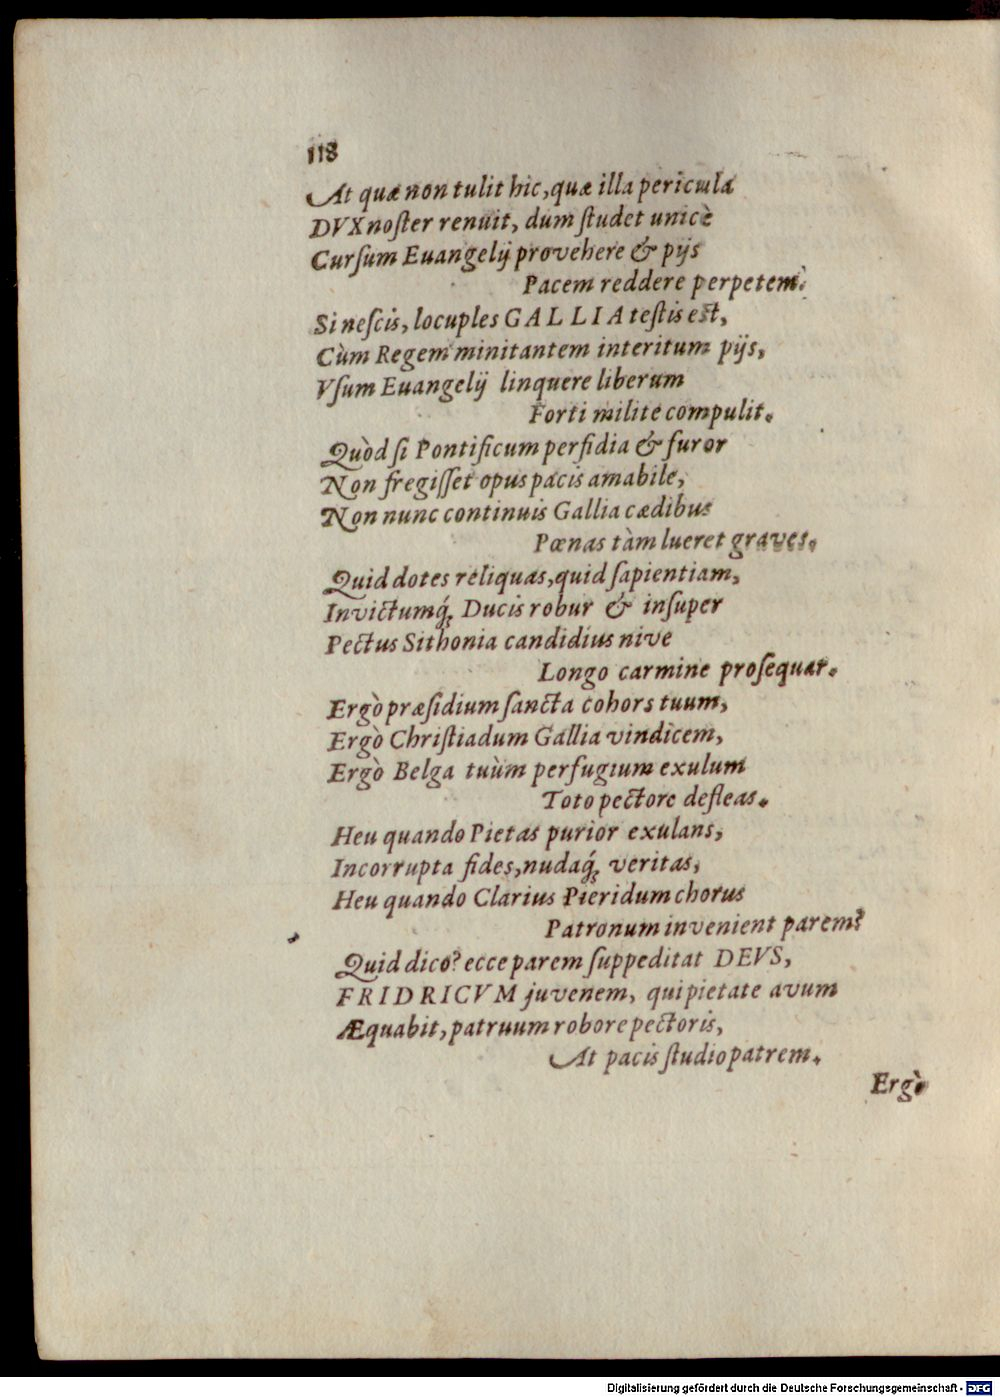 118
At quæ non tulit hic, quæ illa pericula
DVX noſter renuit, dum ſtudet unicè
Curſum Euangelij provehere & pijs
Pacem reddere perpetem.
Si neſcis, locuples GALLIA teſtis est,
Cùm Regem minitantem interitum pijs,
Vſum Euangelij linquere liberum
Forti milite compulit.
Quòd ſi Pontificum perfidia & furor
Non fregiſſet opus pacis amabile,
Non nunc continuis Gallia cædibus
Pœnas tàm lueret graves.
Quid dotes reliquas, quid ſapientiam,
Invictumq́; Ducis robur & inſuper
Pectus Sithonia candidius nive
Longo carmine proſequar.
Ergò præſidium ſancta cohors tuum,
Ergò Chriſtiadum Gallia vindicem,
Ergò Belga tuùm perfugium exulum
Toto pectore defleas.
Heu quando Pietas purior exulans,
Incorrupta fides, nudaq́; veritas,
Heu quando Clarius Pieridum chorus
Patronum invenient parem?
Quid dico? ecce parem ſuppeditat DEVS,
FRIDRICVM juvenem, qui pietate avum
Æquabit, patruum robore pectoris,
At pacis ſtudio patrem.
Ergò
Digitalisierung gefördert durch die Deutsche Forschungsgemeinschaft - DFG